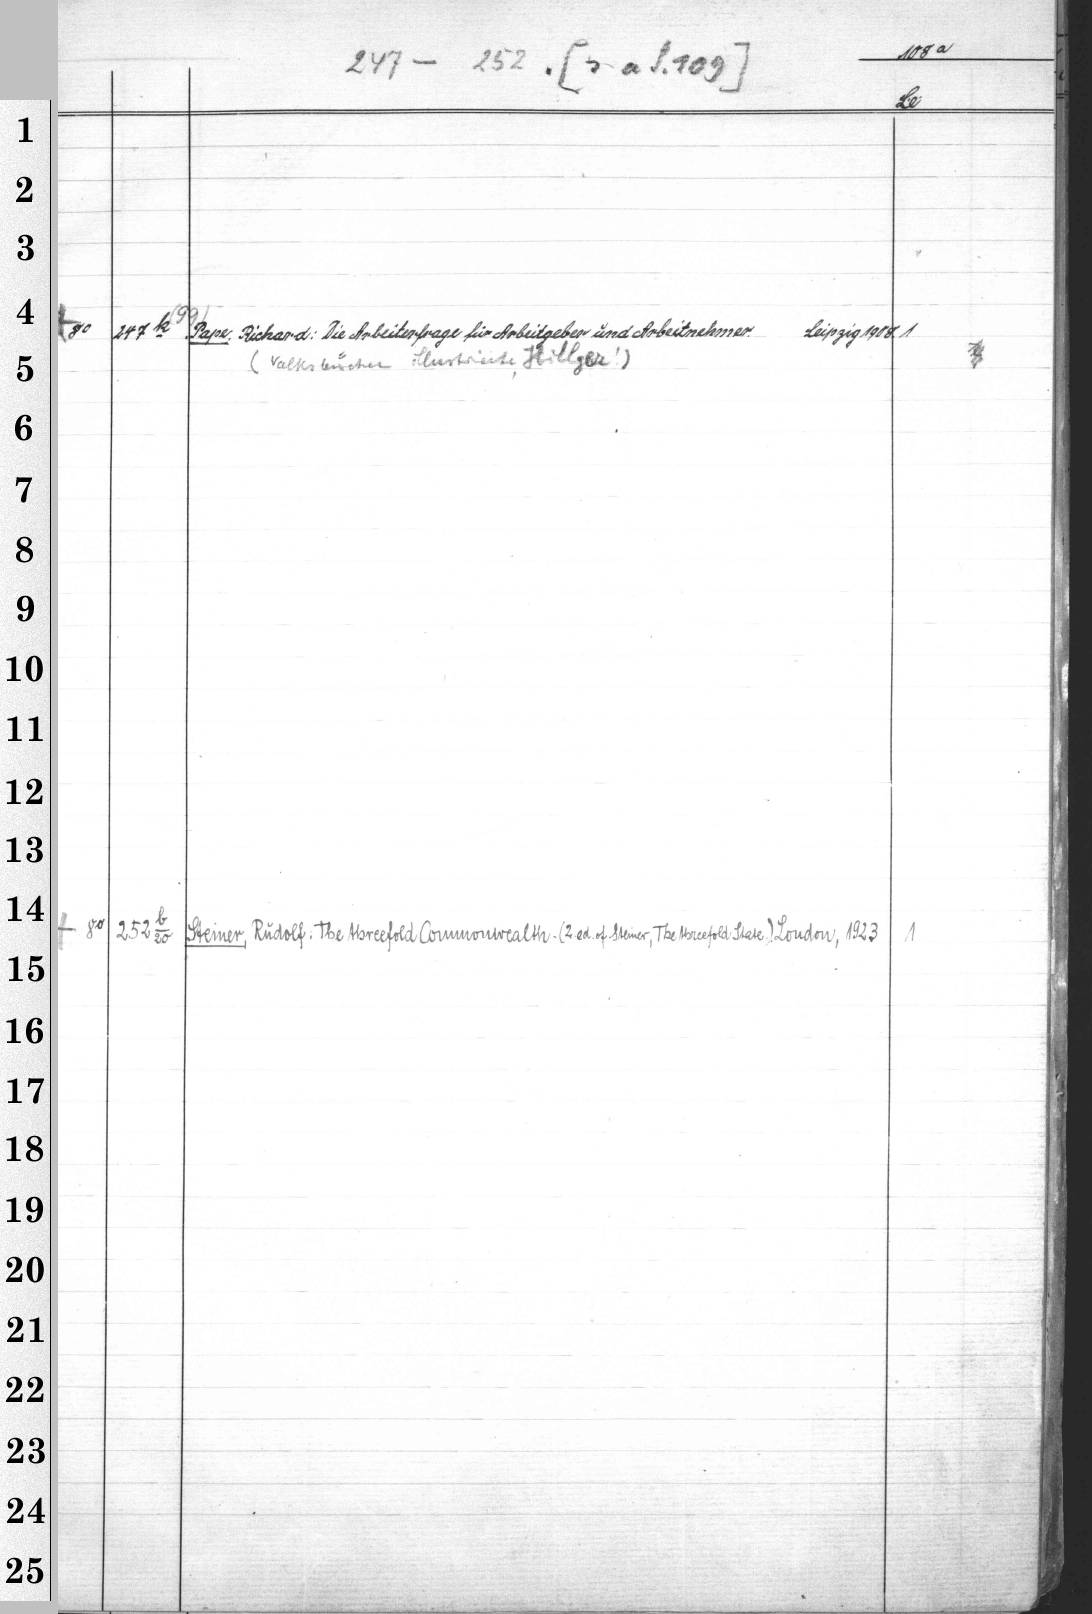 247 – 252. [s a S. 109]
108 a
Le
1
2
3
4
8° 247 k (99) Pape, Richard: Die Arbeiterfrage für Arbeitgeber und Arbeitnehmer. Leipzig 1908. 1
5
(Volksbücher Illustrierte, Hillger!)
6
7
8
9
10
11
12
13
14
+ 8° 252 b/20 Steiner, Rudolf: The threefold Commonwealth. (2. ed. of Steiner, The threefold State.) London, 1923 1
15
16
17
18
19
20
21
22
23
24
25